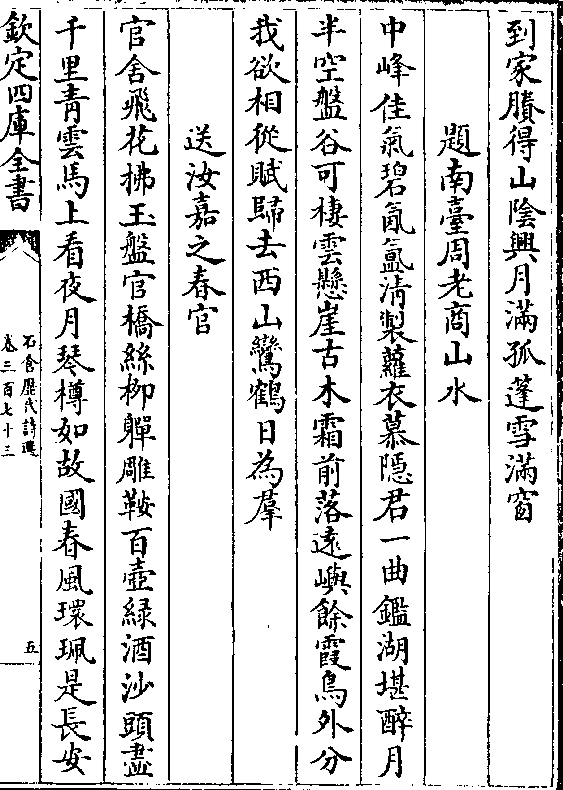 到家賸得山陰興月滿孤蓬雪滿窗
題南臺周老商山水
中峰佳氣碧氤氳淸製蘿衣慕隱君一曲鑑湖堪醉月
半空盤谷可棲雲懸崖古木霜前落遠嶼餘霞鳥外分
我欲相從賦歸去西山鸞鶴日為羣
送汝嘉之春官
官舍飛花拂玉盤官橋絲栁嚲雕鞍百壺緑酒沙頭盡
千里青雲馬上看夜月琴樽如故國春風環珮是長安
欽定四庫全書
石倉歷代詩選
卷三百七十三
五